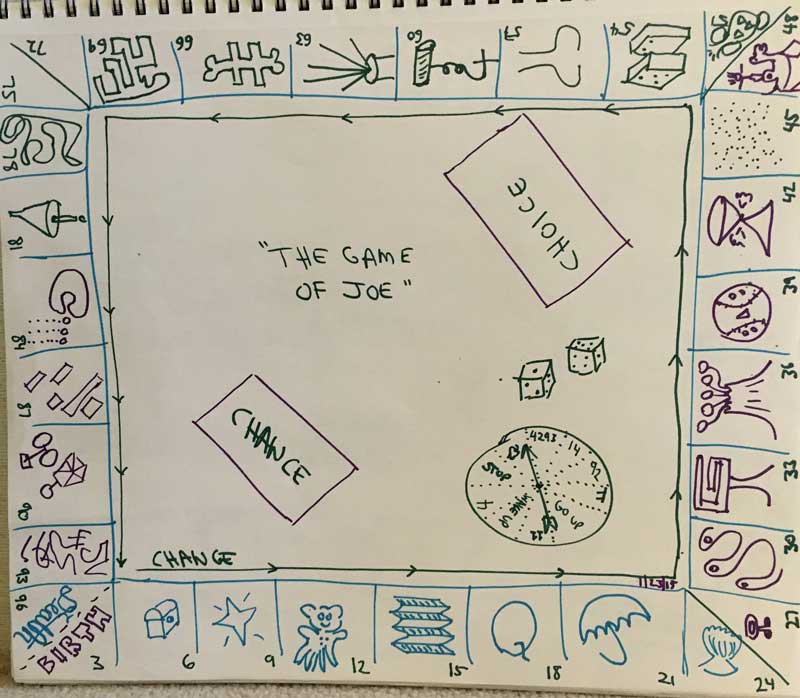 72
69
66
63
60
57
54
48
75
78
45
81
42
CHOICE
"THE GAME
OF JOE"
39
84
36
87
CHANCE
4293
14
92
STOP
π
33
GO UP
4
12
90
30
CHANGE
93
96
Death
27
3
6
9
12
15
18
21
24